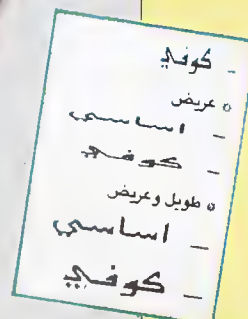 - كوفي
○ عريض
- اساسي
- كوفي
○ طويل وعريض
- اساسي
- كوفي